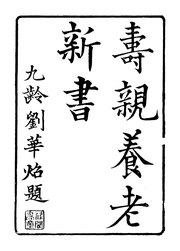 壽親養老
新書
九齡劉華焰題